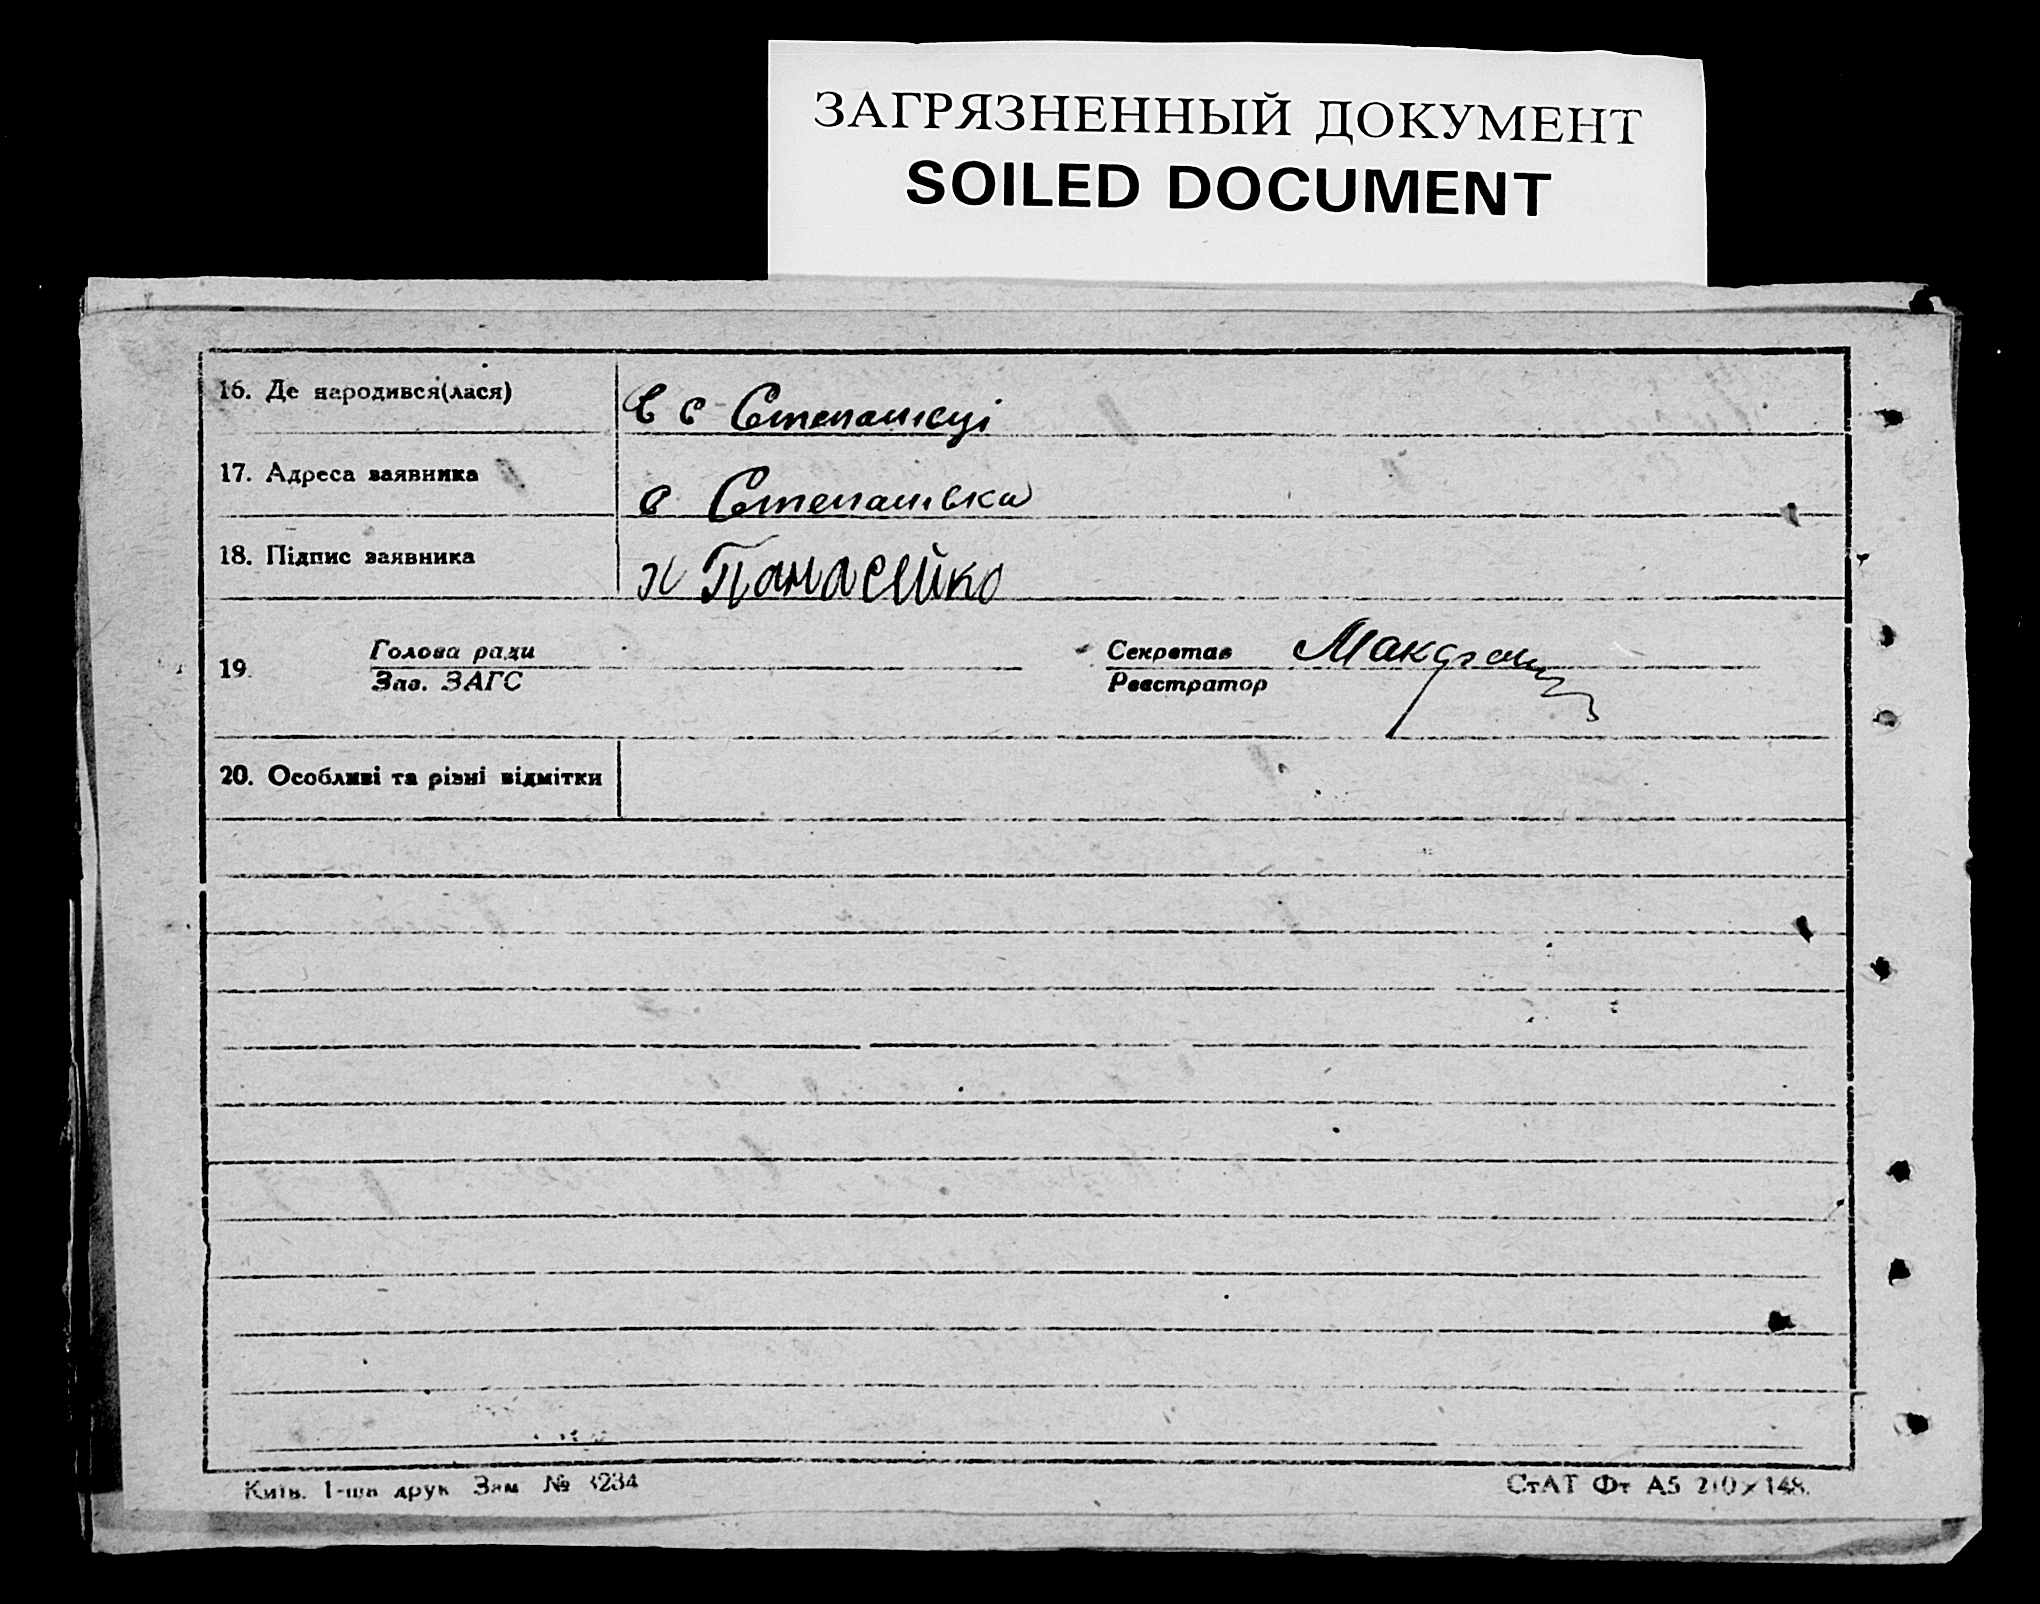 ЗАГРЯЗНЕННЫЙ ДОКУМЕНТ
SOILED DOCUMENT
16. Де народився(лася)
в с Степашкці
17. Адреса заявника
с Степашвка
18. Підпис заявника
Панасейко
19. Голова ради Секретар
Зав. ЗАГС Реєстратор
20. Особливі та різні відмітки
Київ. 1-ша друк Зам № 3234 СтАТ Фт А5 210×148.